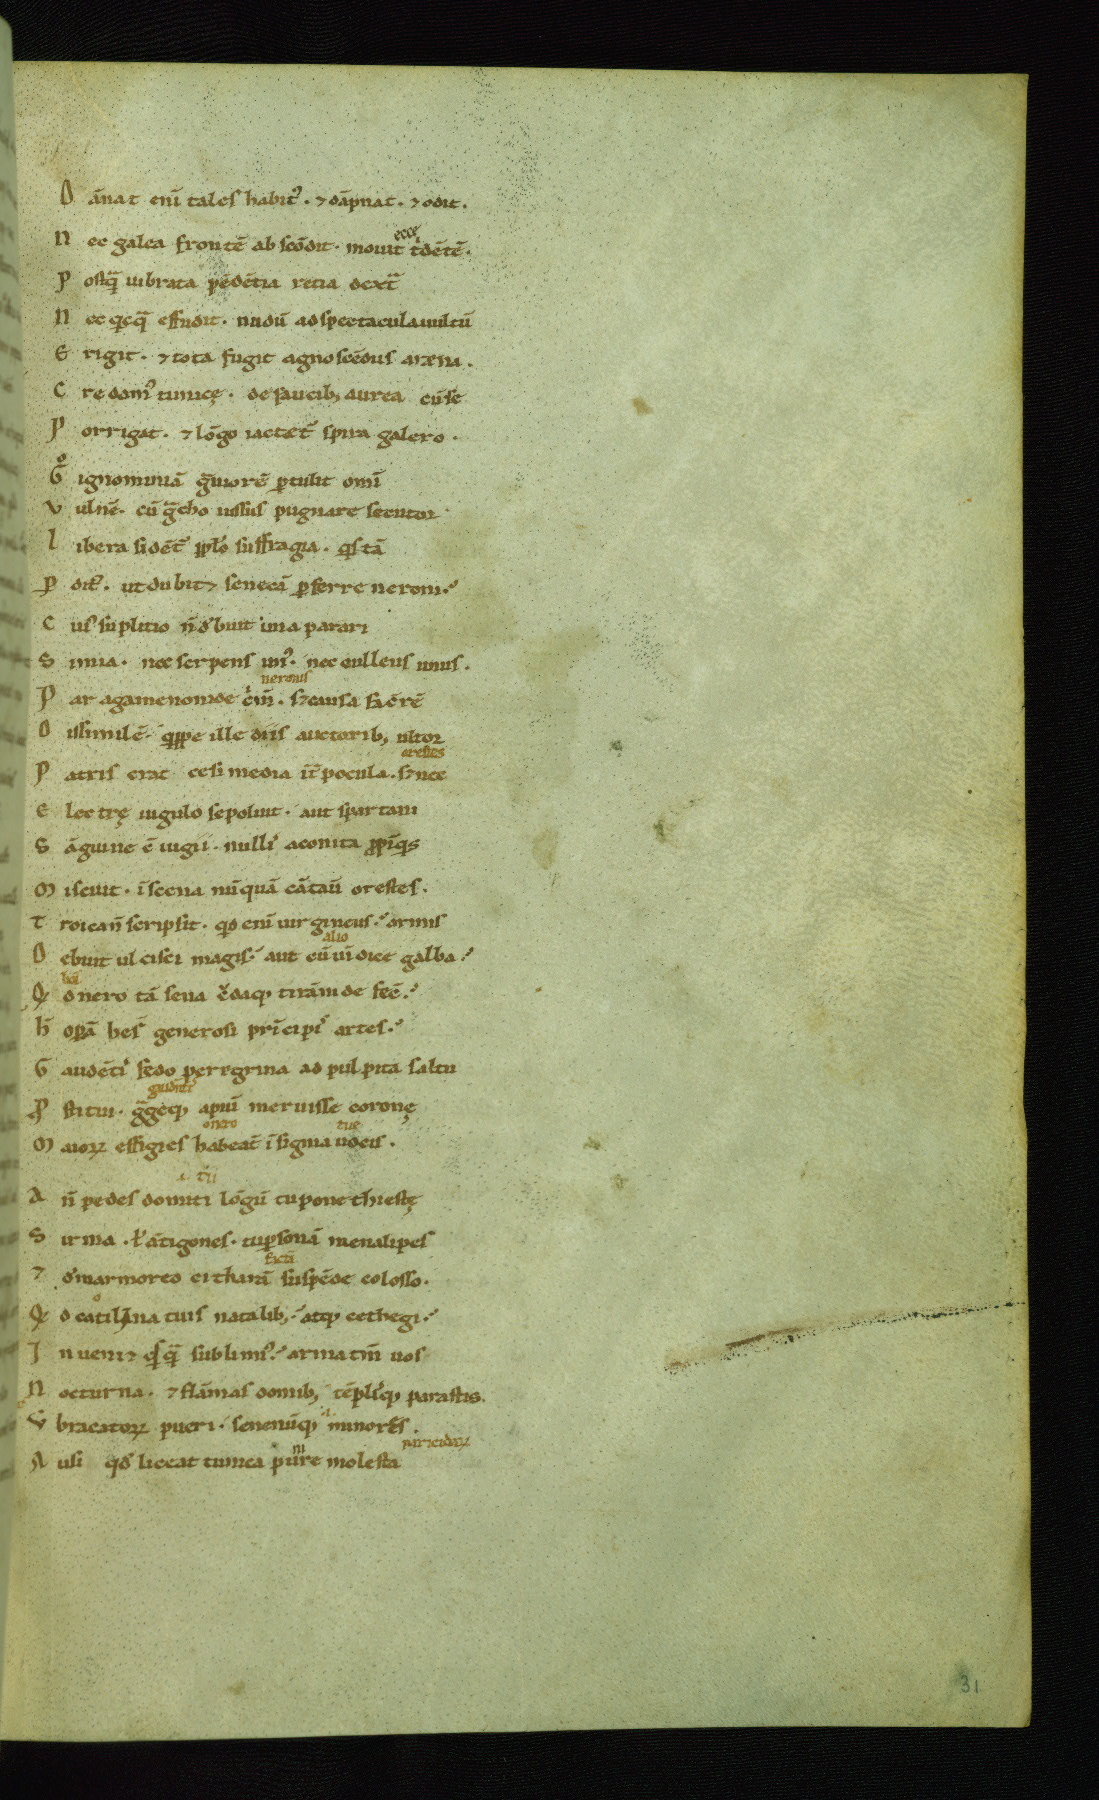 D ānat eni̅ tales habit᷒ . ⁊ dāpnat . ⁊ odit .
ecce
N ec galea frontē abscōdit . mouit t̍dētē .
P ostq̄ uibrata pēdētia retia dext̄
N ec q̍cq̄ effudit . nudū ad spectacula uultū
E rigit . ⁊ tota fugit agnoscēdus arena .
C redam᷒ tunicę . de faucib; aurea cū se
P orrigat . ⁊ lōgo iactet᷒ spira galero .
G̊ ignominiā ḡuiorē ꝑtulit omī
V ulnē . cū ḡcho iussus pugnare secutor
L ibera si dēt᷒ pplo̅ suffragia . q̍s tā
P dit᷒ . ut dubit⁊ senecā ꝑferre neroni .
C ui᷒ suplitio n̄ d᷒buit una parari
S imia . nec serpens un᷒ . nec culleus unus .
neronis
P ar agamenonide c̍m̄ . s⁊ causa facē rē
D issimilē . q̍ppe ille diis auctorib; ultor
orestes
P atris erat cesi media īt᷒ pocula . s⁊ nec
E lectrę iugulo se poluit . aut spartani
S āguine ↄiugii . nulli᷒ aconita ꝓpīq̍s
M iscuit . ī scena nūquā cātau̅ orestes .
T roica n̄ scripsit . qd eni̅ uirgineus armis
alio
D ebuit ulcisci magis aut cū uīdice galba
Q d nero tā seua c̄daq; tirānide fec̄ .
H ̄ oꝑa ̄ hes̄ generosi prīcipi᷒ artes .
G audēti᷒ fedo peregrina ad pulpita saltu
P stitui . g̍geq; apiu̅ meruisse coronę
onero tue
M aioꝝ effigies habeāt īsignia uocis .
tu
A n̄ pedes domiti lōgū tu pone thiestę
S irma . ł ātigones . tu ꝑsonā menalipes
⁊ d᷒ marmoreo citharā suspēde colosso .
Q d catilina tuis natalib; atq; cethegi
I nueni⁊ q̍sq̄ sublimi᷒ arma tm̄ uos
N octurna . ⁊ flāmas domib; tēplisq; parastis .
V̇ bracatoꝝ pueri . senenūq; minores .
parricidaꝝ
A usi qd̄ liceat tunica punire molesta
31